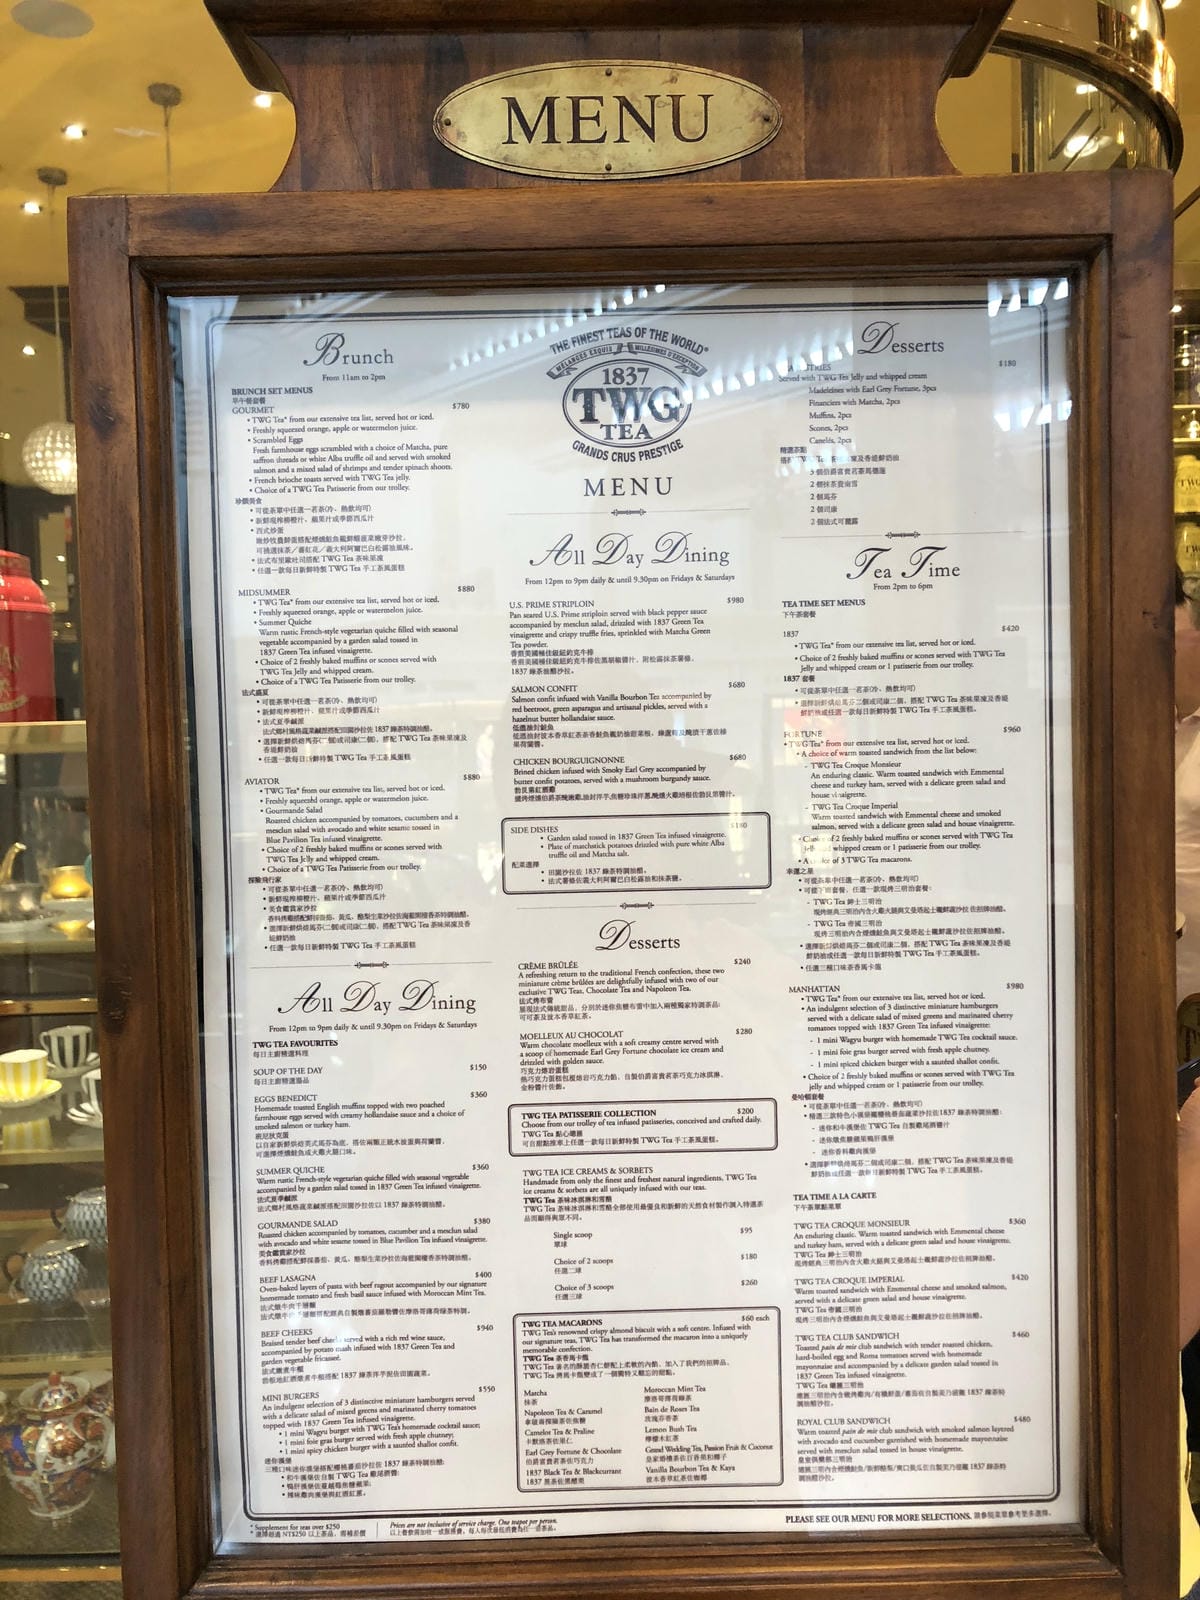 MENU
Brunch
From 11am to 2pm
BRUNCH SET MENUS
早午餐套餐
GOURMET $780
• TWG Tea* from our extensive tea list, served hot or iced.
• Freshly squeezed orange, apple or watermelon juice.
• Scrambled Eggs
Fresh farmhouse eggs scrambled with a choice of Matcha, pure
saffron threads or white Alba truffle oil and served with smoked
salmon and a mixed salad of shrimps and tender spinach shoots.
• French brioche toasts served with TWG Tea jelly.
• Choice of a TWG Tea Patisserie from our trolley.
珍饌美食
• 可從茶單中任選一茗茶(冷、熱飲均可)
• 新鮮現榨柳橙汁、蘋果汁或季節西瓜汁
• 西式炒蛋
• 法式布里歐吐司搭配 TWG Tea 茶味果凍
• 任選一款每日新鮮特製 TWG Tea 手工茶風蛋糕
MIDSUMMER $880
• TWG Tea* from our extensive tea list, served hot or iced.
• Freshly squeezed orange, apple or watermelon juice.
• Summer Quiche
Warm rustic French-style vegetarian quiche filled with seasonal
vegetable accompanied by a garden salad tossed in
1837 Green Tea infused vinaigrette.
• Choice of 2 freshly baked muffins or scones served with
TWG Tea Jelly and whipped cream.
• Choice of a TWG Tea Patisserie from our trolley.
法式盛夏
• 可從茶單中任選一茗茶(冷、熱飲均可)
• 新鮮現榨柳橙汁、蘋果汁或季節西瓜汁
• 法式夏季鹹派
法式鄉村風格蔬菜鹹派搭配田園沙拉佐 1837 綠茶特調油醋。
• 選擇新鮮烘焙馬芬(二個)或司康(二個)、搭配 TWG Tea 茶味果凍及
香緹鮮奶油
• 任選一款每日新鮮特製 TWG Tea 手工茶風蛋糕
AVIATOR $880
• TWG Tea* from our extensive tea list, served hot or iced.
• Freshly squeezed orange, apple or watermelon juice.
• Gourmande Salad
Roasted chicken accompanied by tomatoes, cucumbers and a
mesclun salad with avocado and white sesame tossed in
Blue Pavilion Tea infused vinaigrette.
• Choice of 2 freshly baked muffins or scones served with
TWG Tea Jelly and whipped cream.
• Choice of a TWG Tea Patisserie from our trolley.
探險飛行家
• 可從茶單中任選一茗茶(冷、熱飲均可)
• 新鮮現榨柳橙汁、蘋果汁或季節西瓜汁
• 美食鑑賞家沙拉
• 選擇新鮮烘焙馬芬(二個)或司康(二個)、搭配 TWG Tea 茶味果凍及香
緹鮮奶油
• 任選一款每日新鮮特製 TWG Tea 手工茶風蛋糕
All Day Dining
From 12pm to 9pm daily & until 9.30pm on Fridays & Saturdays
TWG TEA FAVOURITES
每日主廚精選料理
SOUP OF THE DAY $150
每日主廚精選湯品
EGGS BENEDICT $360
Homemade toasted English muffins topped with two poached
farmhouse eggs served with creamy hollandaise sauce and a choice of
smoked salmon or turkey ham.
班尼狄克蛋
可選擇煙燻鮭魚或火雞火腿口味。
SUMMER QUICHE $360
Warm rustic French-style vegetarian quiche filled with seasonal vegetable
accompanied by a garden salad tossed in 1837 Green Tea infused vinaigrette.
法式夏季鹹派
法式鄉村風格蔬菜鹹派搭配田園沙拉佐以 1837 綠茶特調油醋。
GOURMANDE SALAD $380
Roasted chicken accompanied by tomatoes, cucumber and a mesclun salad
with avocado and white sesame tossed in Blue Pavilion Tea infused vinaigrette.
美食鑑賞家沙拉
BEEF LASAGNA $400
Oven-baked layers of pasta with beef ragout accompanied by our signature
homemade tomato and fresh basil sauce infused with Moroccan Mint Tea.
法式燉牛肉千層麵
BEEF CHEEKS $940
Braised tender beef cheeks served with a rich red wine sauce,
accompanied by potato mash infused with 1837 Green Tea and
garden vegetable fricasseé.
MINI BURGERS $550
An indulgent selection of 3 distinctive miniature hamburgers served
with a delicate salad of mixed greens and marinated cherry tomatoes
topped with 1837 Green Tea infused vinaigrette.
• 1 mini Wagyu burger with TWG Tea's homemade cocktail sauce;
• 1 mini foie gras burger served with fresh apple chutney;
• 1 mini spicy chicken burger with a sautéed shallot confit.
迷你漢堡
* Supplement for teas over $250
THE FINEST TEAS OF THE WORLD
MÉLANGES EXQUIS MILLÉSIMES D'EXCEPTION
1837
TWG
TEA
GRANDS CRUS PRESTIGE
MENU
All Day Dining
From 12pm to 9pm daily & until 9.30pm on Fridays & Saturdays
U.S. PRIME STRIPLOIN $980
Pan seared U.S. Prime striploin served with black pepper sauce
accompanied by mesclun salad, drizzled with 1837 Green Tea
vinaigrette and crispy truffle fries, sprinkled with Matcha Green
Tea powder.
香煎美國極佳級紐約克牛排
香煎美國極佳級紐約克牛排佐黑胡椒醬汁、附松露抹茶薯條、
1837 綠茶油醋沙拉。
SALMON CONFIT $680
Salmon confit infused with Vanilla Bourbon Tea accompanied by
red beetroot, green asparagus and artisanal pickles, served with a
hazelnut butter hollandaise sauce.
低溫油封鮭魚
CHICKEN BOURGUIGNONNE $680
Brined chicken infused with Smoky Earl Grey accompanied by
butter confit potatoes, served with a mushroom burgundy sauce.
勃艮第紅酒雞
SIDE DISHES $180
• Garden salad tossed in 1837 Green Tea infused vinaigrette.
• Plate of matchstick potatoes drizzled with pure white Alba
truffle oil and Matcha salt.
配菜選擇
• 田園沙拉佐 1837 綠茶特調油醋。
• 法式薯條佐義大利阿爾巴白松露油和抹茶鹽。
Desserts
CRÈME BRÛLÉE $240
A refreshing return to the traditional French confection, these two
miniature crème brûlées are delightfully infused with two of our
exclusive TWG Teas, Chocolate Tea and Napoleon Tea.
法式烤布蕾
MOELLEUX AU CHOCOLAT $280
Warm chocolate moelleux with a soft creamy centre served with
a scoop of homemade Earl Grey Fortune chocolate ice cream and
drizzled with golden sauce.
巧克力熔岩蛋糕
TWG TEA PATISSERIE COLLECTION $200
Choose from our trolley of tea infused patisseries, conceived and crafted daily.
TWG Tea 點心總匯
可自甜點推車上任選一款每日新鮮製 TWG Tea 手工茶風蛋糕。
TWG TEA ICE CREAMS & SORBETS
Handmade from only the finest and freshest natural ingredients, TWG Tea
ice creams & sorbets are all uniquely infused with our teas.
TWG Tea 茶味冰淇淋和雪酪
TWG Tea 茶味冰淇淋和雪酪全部使用最優良和新鮮的天然食材製作調入特選茶
品而顯得與眾不同。
Single scoop $95
單球
Choice of 2 scoops $180
任選二球
Choice of 3 scoops $260
任選三球
TWG TEA MACARONS $60 each
TWG Tea's renowned crispy almond biscuit with a soft centre. Infused with
our signature teas, TWG Tea has transformed the macaron into a uniquely
memorable confection.
TWG Tea 茶香馬卡龍
Matcha
抹茶
Napoleon Tea & Caramel
Camelot Tea & Praline
Earl Grey Fortune & Chocolate
1837 Black Tea & Blackcurrant
1837 黑茶佐黑醋栗
Moroccan Mint Tea
摩洛哥薄荷綠茶
Bain de Roses Tea
玫瑰芬香茶
Lemon Bush Tea
檸檬木紅茶
Grand Wedding Tea, Passion Fruit & Coconut
皇家婚禮茶佐百香果和椰子
Vanilla Bourbon Tea & Kaya
波本香草紅茶佐咖椰
Prices are not inclusive of service charge. One teapot per person.
Desserts
$180
Served with TWG Tea Jelly and whipped cream
Madeleines with Earl Grey Fortune, 3pcs
Financiers with Matcha, 2pcs
Muffins, 2pcs
Scones, 2pcs
Canelés, 2pcs
精選茶點
3 個伯爵富貴茗茶馬德蓮
2 個抹茶費南雪
2 個馬芬
2 個司康
2 個法式可麗露
Tea Time
From 2pm to 6pm
TEA TIME SET MENUS
下午茶套餐
1837 $420
• TWG Tea* from our extensive tea list, served hot or iced.
• Choice of 2 freshly baked muffins or scones served with TWG Tea
Jelly and whipped cream or 1 patisserie from our trolley.
1837 套餐
• 可從茶單中任選一茗茶(冷、熱飲均可)
• 選擇新鮮烘焙馬芬二個或司康二個、搭配 TWG Tea 茶味果凍及香緹
鮮奶油或任選一款每日新鮮特製 TWG Tea 手工茶風蛋糕。
FORTUNE $960
• TWG Tea* from our extensive tea list, served hot or iced.
• A choice of warm sandwich from the list below:
- TWG Tea Croque Monsieur
An enduring classic. Warm toasted sandwich with Emmental
cheese and turkey ham, served with a delicate green salad and
house vinaigrette.
- TWG Tea Croque Imperial
Warm toasted sandwich with Emmental cheese and smoked
salmon, served with a delicate green salad and house vinaigrette.
• Choice of 2 freshly baked muffins or scones served with TWG Tea
Jelly and whipped cream or 1 patisserie from our trolley.
• A choice of 3 TWG Tea macarons.
幸運之星
• 可從茶單中任選一茗茶(冷、熱飲均可)
- TWG Tea 紳士三明治
- TWG Tea 帝國三明治
• 選擇新鮮烘焙馬芬二個或司康二個、搭配 TWG Tea 茶味果凍及香緹
鮮奶油或任選一款每日新鮮特製 TWG Tea 手工茶風蛋糕。
• 任選三種口味茶香馬卡龍
MANHATTAN $980
• TWG Tea* from our extensive tea list, served hot or iced.
• An indulgent selection of 3 distinctive miniature hamburgers
served with a delicate salad of mixed greens and marinated cherry
tomatoes topped with 1837 Green Tea infused vinaigrette:
- 1 mini Wagyu burger with homemade TWG Tea cocktail sauce.
- 1 mini foie gras burger served with fresh apple chutney.
- 1 mini spiced chicken burger with a sautéed shallot confit.
• Choice of 2 freshly baked muffins or scones served with TWG Tea
jelly and whipped cream or 1 patisserie from our trolley.
曼哈頓套餐
• 可從茶單中任選一茗茶(冷、熱飲均可)
• 選擇新鮮烘焙馬芬二個或司康二個、搭配 TWG Tea 茶味果凍及香緹
鮮奶油或任選一款每日新鮮特製 TWG Tea 手工茶風蛋糕。
TEA TIME A LA CARTE
下午茶單點菜單
TWG TEA CROQUE MONSIEUR $360
An enduring classic. Warm toasted sandwich with Emmental cheese
and turkey ham, served with a delicate green salad and house vinaigrette.
TWG Tea 紳士三明治
TWG TEA CROQUE IMPERIAL $420
Warm toasted sandwich with Emmental cheese and smoked salmon,
served with a delicate green salad and house vinaigrette.
TWG Tea 帝國三明治
TWG TEA CLUB SANDWICH $460
Toasted pain de mie club sandwich with tender roasted chicken,
hard-boiled egg and Roma tomatoes served with homemade
mayonnaise and accompanied by a delicate garden salad tossed in
1837 Green Tea infused vinaigrette.
TWG Tea 總匯三明治
ROYAL CLUB SANDWICH $480
Warm toasted pain de mie club sandwich with smoked salmon layered
with avocado and cucumber garnished with homemade mayonnaise
served with mesclun salad tossed in house vinaigrette.
皇室俱樂部三明治
PLEASE SEE OUR MENU FOR MORE SELECTIONS. 請參閱菜單參考更多選擇。